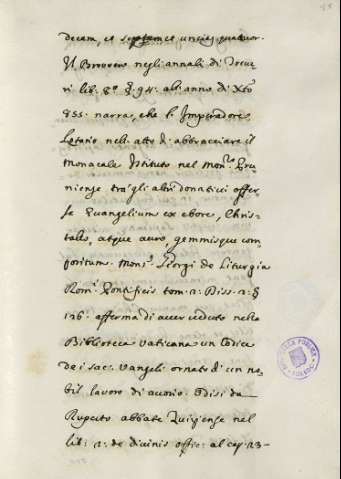 decem, et septem et uncies quatuor.
Il Browero negli annali di Treve
ri lib. 8º §. 94. all'anno di Xto
855. narra, che l'Imperadore
Lotario nell'atto d'abbracciare il
Monacale Istituto nel Mon.ro Pru
niense tra gli altri donativi offer
se Evangelium ex ebore, Chris
tallo, atque auro, gemmisque com
positum. Mons.r Giorgi de Liturgia
Rom.i Pontificis tom. 1. Diss. 2. §
126. afferma di aver veduto nella
Biblioteca Vaticana un Codice
de i sac. Vangeli ornato d'un no
bil lavoro di avorio. Odasi da
Ruperto abbate Tuiziense nel
lib. 2. de divinis offic. al cap. 23-